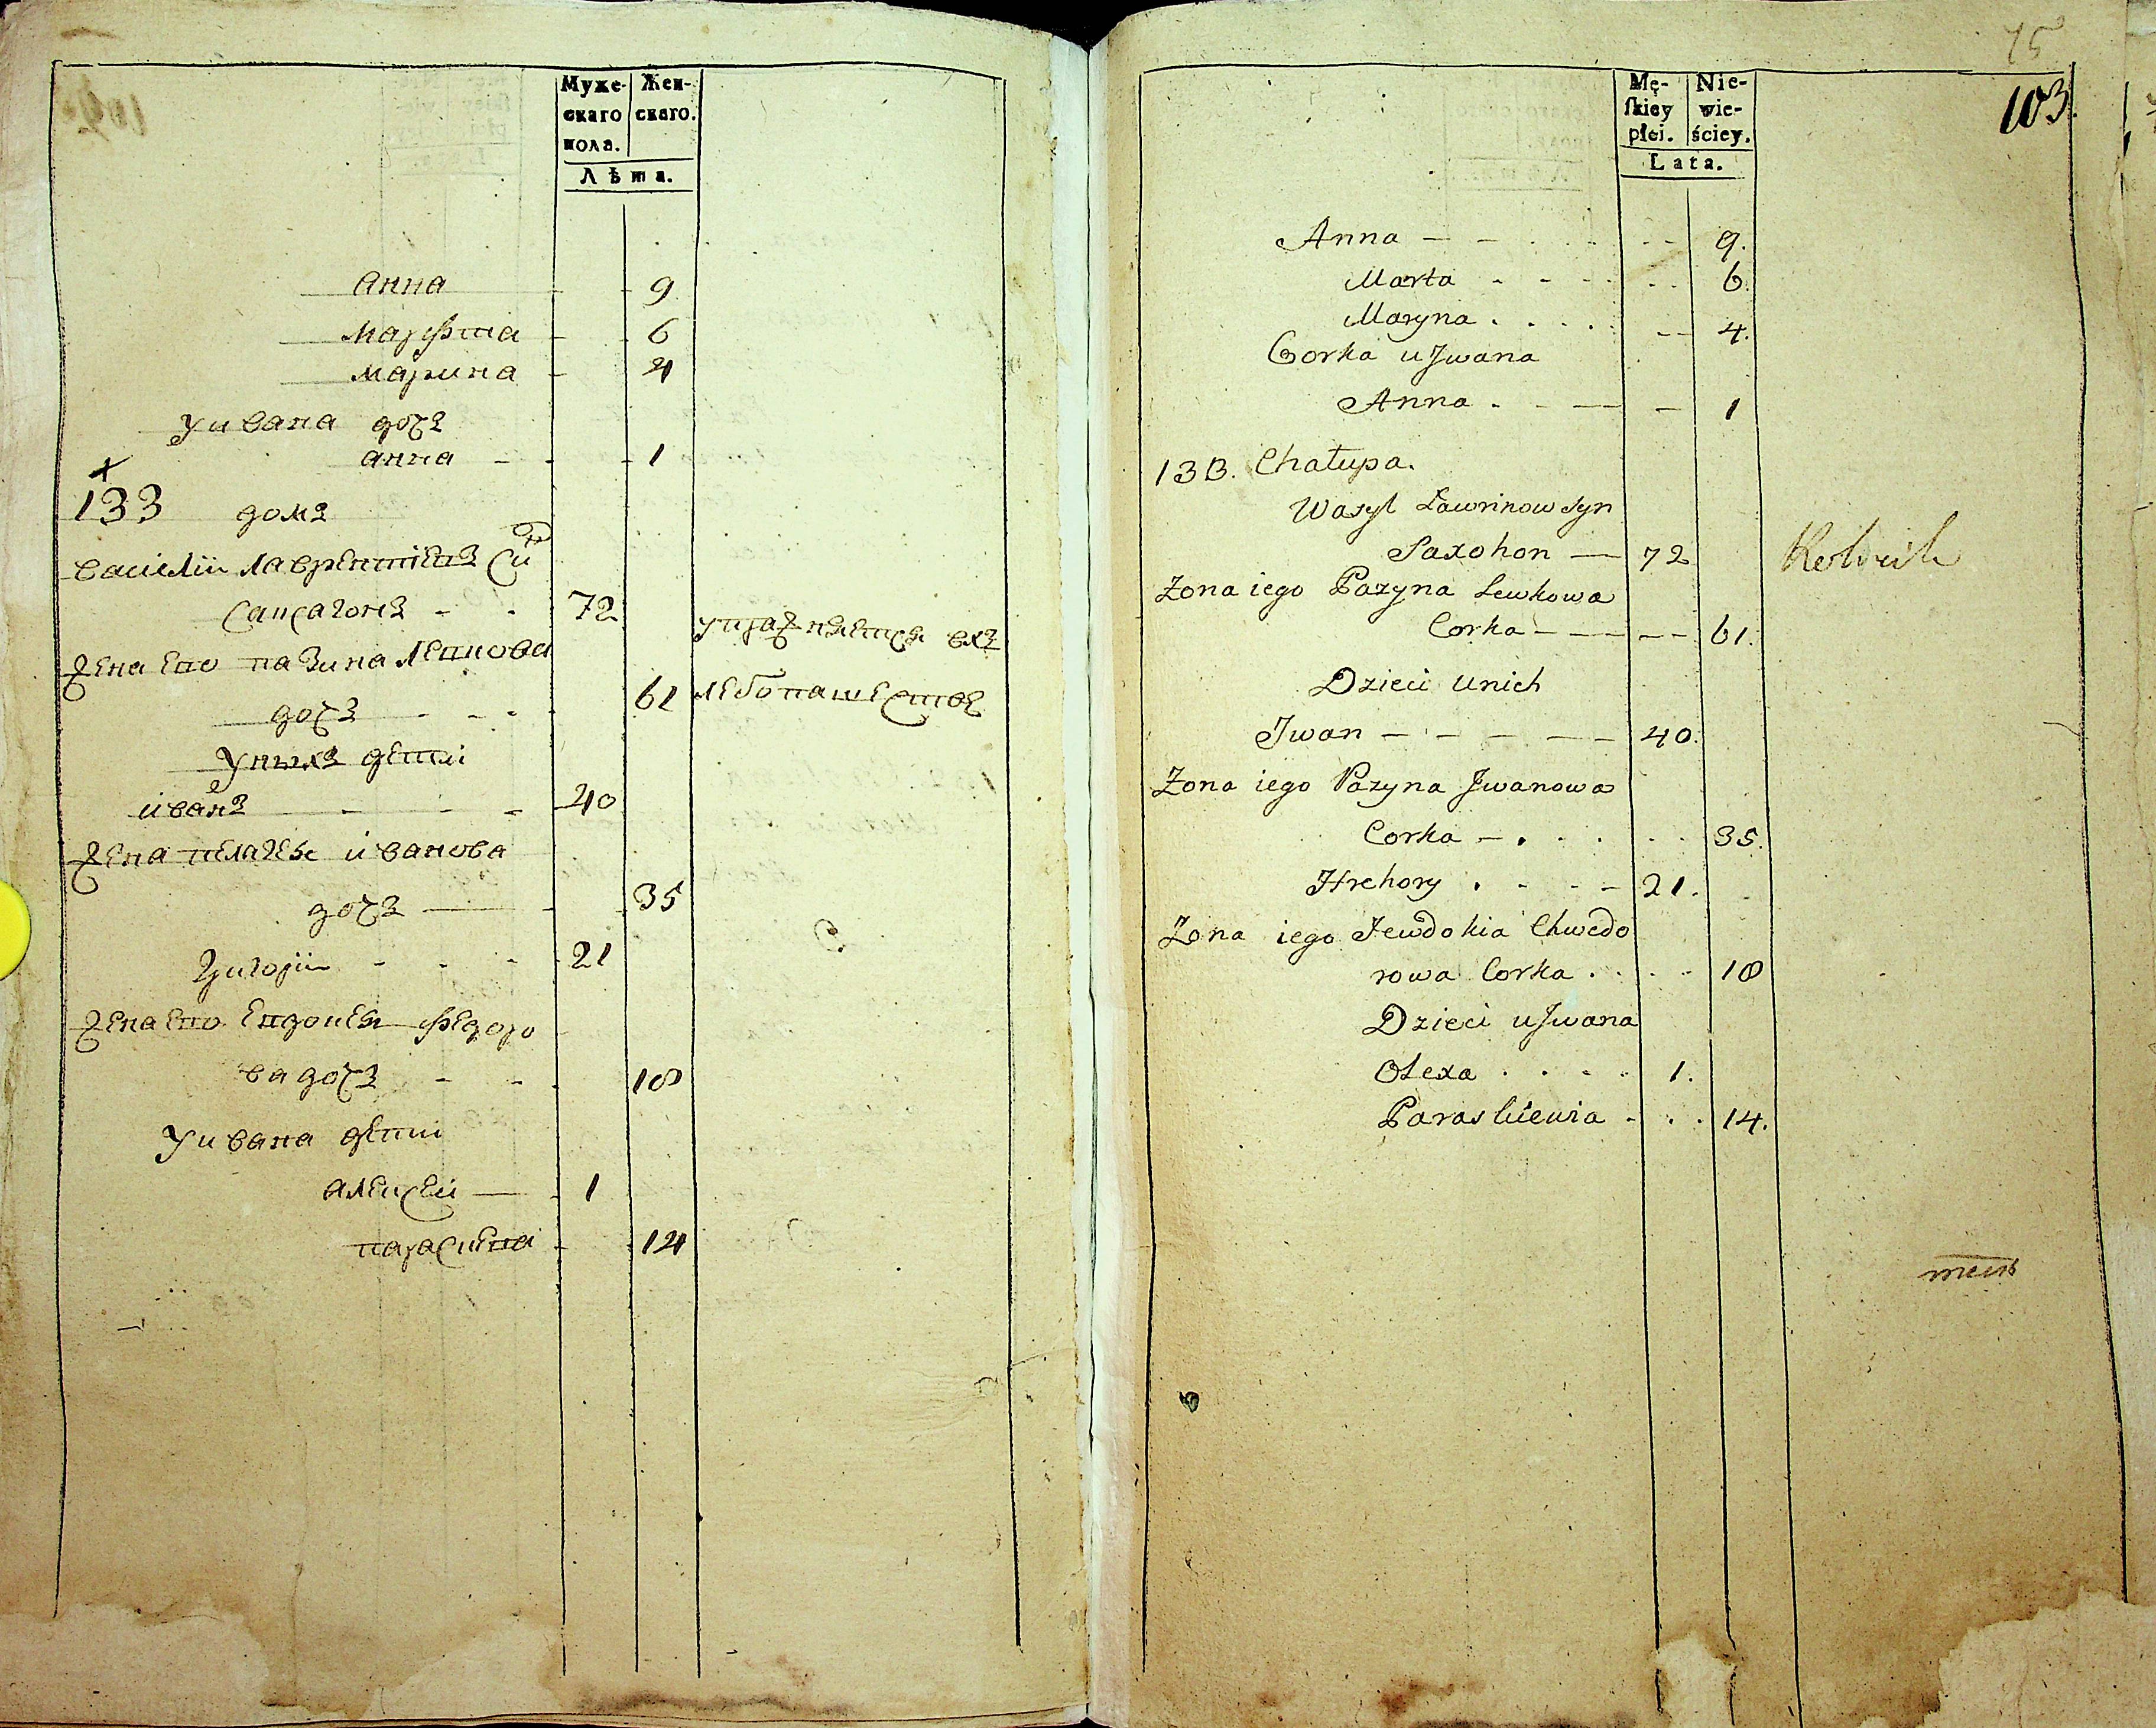 Муже-
скаго
пола.
Жен-
скаго.
Лѣта.
анна 9
марфта 6
марина 4
у ивана дочъ
анна 1
133 домъ
василіи лаврентіевъ сн҃ъ
саксагонъ 72
жена ево пазина левкова
дочъ 61
упражняется вхъ
лебопашествѣ
у нихъ дети
иванъ 40
жена пелагея иванова
дочъ 35
григорій 21
жена ево евдокея федоро
ва дочъ 18
у ивана дети
алексей 1
параскева 14
75
103.
Mę-
ſkiey
płci.
Nie-
wie-
ściey.
Lata.
Anna 9.
Marta 6.
Maryna 4.
Corka u Jwana
Anna 1
133. Chałupa.
Wasyl Ławrinow syn
Saxohon 72
Żona iego Pazyna Lewkowa
Corka 61.
Dzieci u nich
Jwan 40.
Żona iego Pazyna Jwanowa
Corka 35.
Hrehory 21.
Żona iego Jewdokia Chwedo
rowa Corka 18
Dzieci u Jwana
Olexa 1.
Paraskiewia 14.